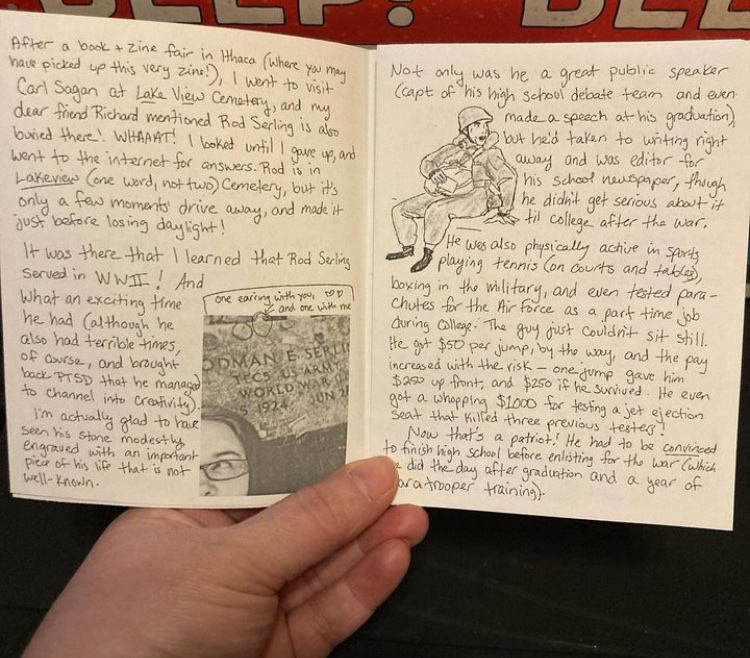 BEEP!
After a book + zine fair in Ithaca (where you may
have picked up this very zine!), I went to visit
Carl Sagan at Lake View Cemetery, and my
dear friend Richard mentioned Rod Serling is also
buried there! WHAAAT! I looked until I gave up, and
went to the internet for answers. Rod is in
Lakeview (one word, not two) Cemetery, but it's
only a few moments' drive away, and made it
just before losing daylight!
It was there that I learned that Rod Serling
served in WWII! And
what an exciting time
he had (although he
also had terrible times,
of course, and brought
back PTSD that he managed
to channel into creativity).
I'm actually glad to have
seen his stone modestly
engraved with an important
piece of his life that is not
well-known.
one earing with you,
and one with me
ODMAN E SERLI
TEC5 US ARM
WORLD WAR
5 1924 JUN 2
Not only was he a great public speaker
(capt of his high school debate team and even
made a speech at his graduation),
but he'd taken to writing right
away and was editor for
his school newspaper, though
he didn't get serious about it
til college after the war.
He was also physically active in sports
playing tennis (on courts and tables),
boxing in the military, and even tested para-
chutes for the Air Force as a part time job
during College. The guy just couldn't sit still.
He got $50 per jump, by the way, and the pay
increased with the risk — one jump gave him
$250 up front, and $250 if he survived. He even
got a whopping $1000 for testing a jet ejection
seat that killed three previous testers!
Now that's a patriot! He had to be convinced
to finish high school before enlisting for the war (which
e did the day after graduation and a year of
aratrooper training).